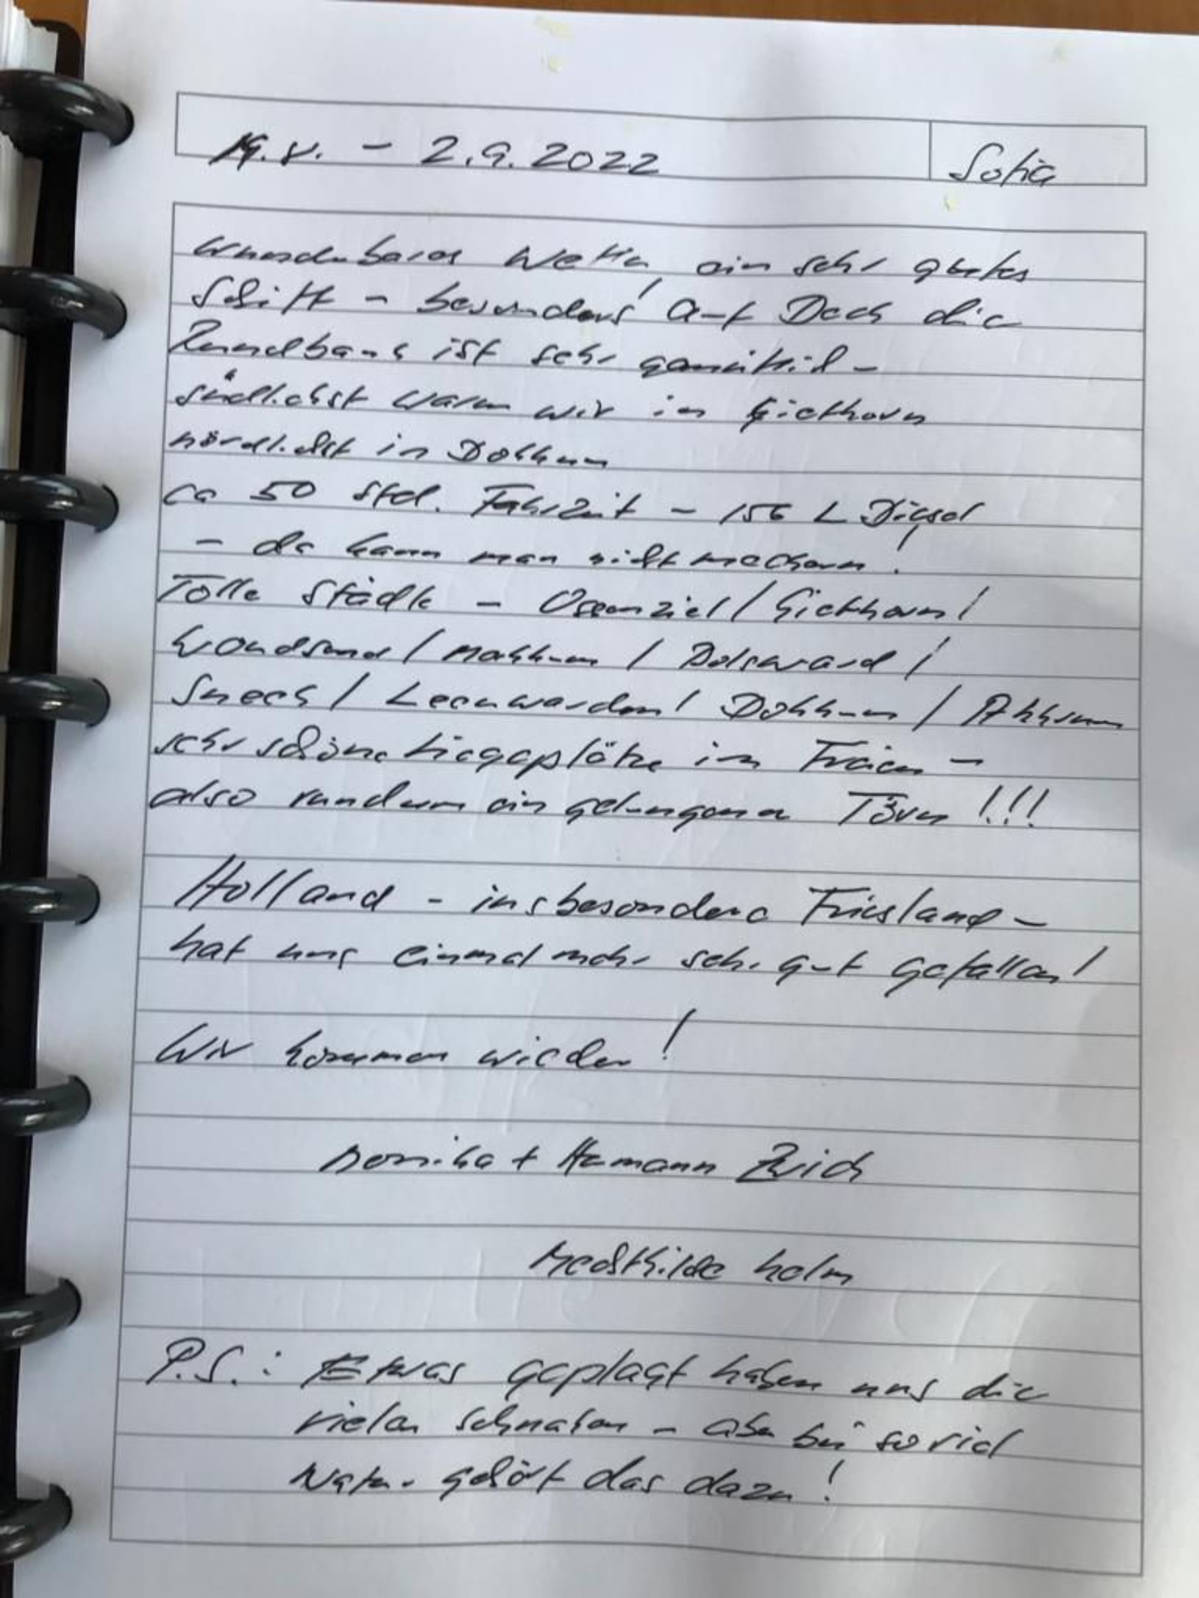 19.8. - 2.9.2022 Sofia
Wunderbares Wetter, ein sehr gutes
Schiff - besonders auf Deck die
Rundbank ist sehr gemütlich -
südlichst waren wir in Giethorn
nördlichst in Dokkum
ca 50 Std. Fahrzeit - 156 L Diesel
- da kann man nicht meckern!
Tolle Städte - Ossenziel / Giethorn /
Woudsend / Makkum / Bolsward /
Sneek / Leeuwarden / Dokkum / Akkrum
sehr schöne Liegeplätze im Freien -
also rundum ein gelungener Törn!!!
Holland - insbesondere Friesland -
hat uns einmal mehr sehr gut gefallen!
Wir kommen wieder!
Monika + Hermann
Mechthilde Helm
P.S.: Etwas geplagt haben uns die
vielen Schnaken - aber bei so viel
Natur gehört das dazu!